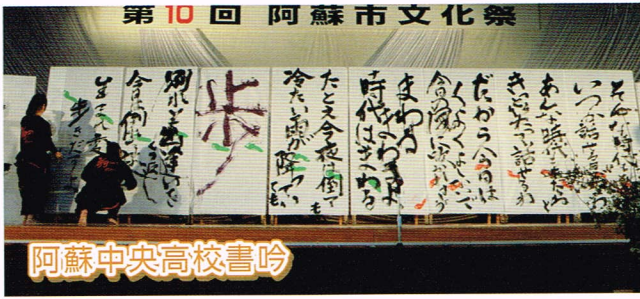 第10回 阿蘇市文化祭
そんな時代
いつか話せる
あんな時代もあったねと
きっと笑って話せるわ
だから今日は
くよくよしないで
今日の風に吹かれましょう
まわる
まわるよ
時代はまわる
たとえ今夜は倒れても
冷たい雨が降っていても
歩
別れと出逢いを
くり返し
今日は倒れ
生まれ変わって
歩きだすよ
阿蘇中央高校書吟